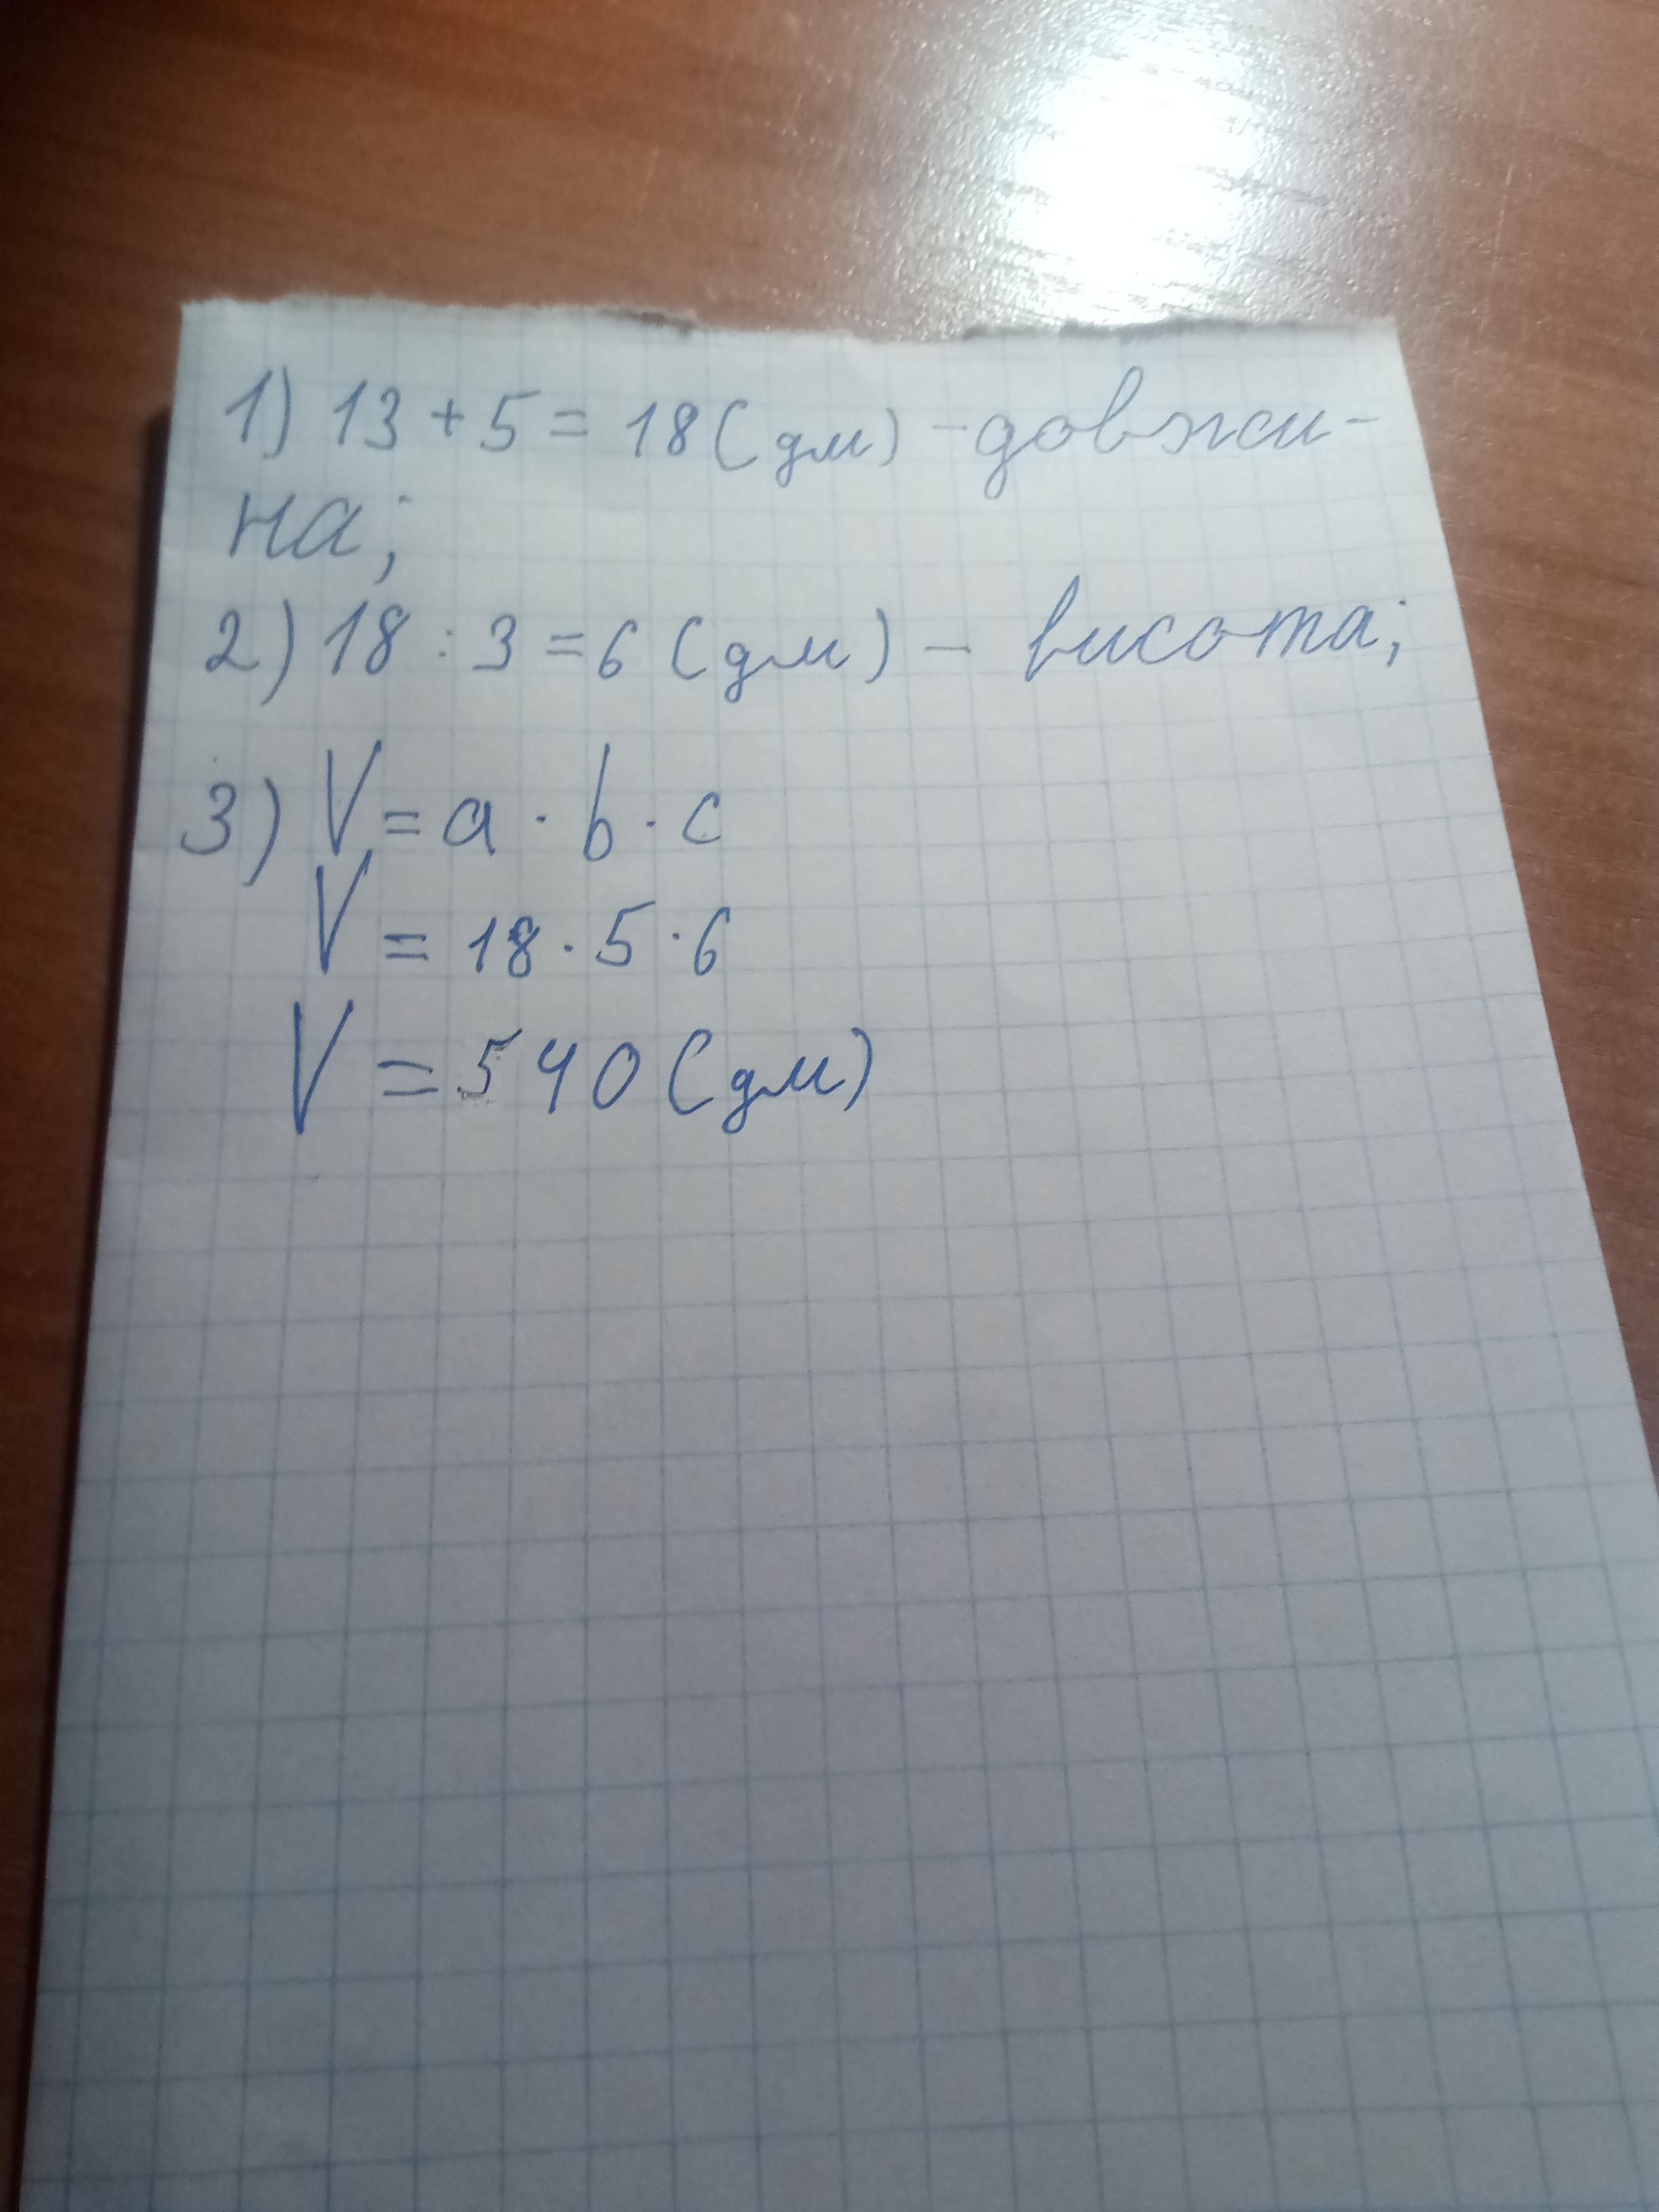 1) 13 + 5 = 18 (дм) - довжи-
на;
2) 18 : 3 = 6 (дм) - висота;
3) V = a · b · c
V = 18 · 5 · 6
V = 540 (дм)